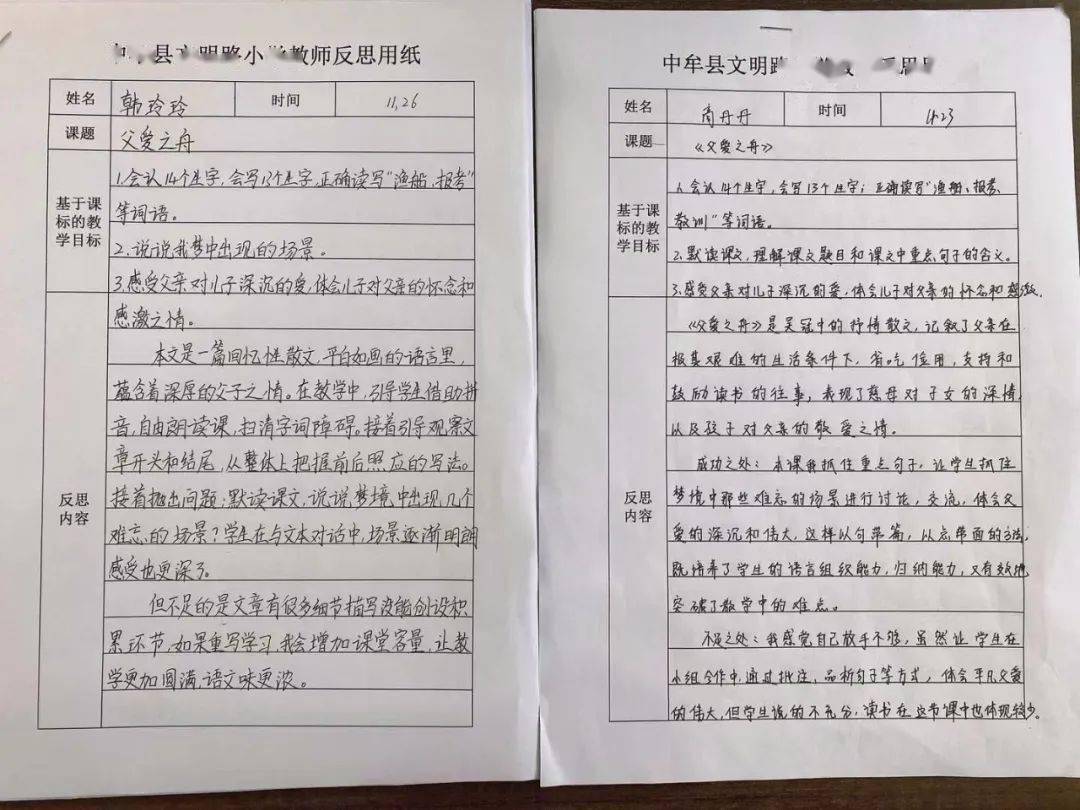 县文明路小学教师反思用纸
姓名 韩玲玲 时间 11,26
课题 父爱之舟
基于课标的教学目标
1.会认14个生字,会写13个生字,正确读写“渔船,报考”
等词语。
2.说说我梦中出现的场景。
3.感受父亲对儿子深沉的爱,体会儿子对父亲的怀念和
感激之情。
反思内容
本文是一篇回忆性散文,平白如画的语言里,
蕴含着深厚的父子之情。在教学中,引导学生借助拼
音,自由朗读课,扫清字词障碍。接着引导观察文
章开头和结尾,从整体上把握前后照应的写法。
接着抛出问题:默读课文,说说梦境中出现几个
难忘的场景?学生在与文本对话中,场景逐渐明朗
感受也更深了。
但不足的是文章有很多细节描写没能创设积
累环节,如果重写学习,我会增加课堂容量,让教
学更加圆满,语文味更浓。
中牟县文明路
思用
姓名 丹丹 时间 11.23
课题 《父爱之舟》
基于课标的教学目标
1.会认14个生字,会写13个生字;正确读写“渔船、报考、
教训”等词语。
2.默读课文,理解课文题目和课文中重点句子的含义。
3.感受父亲对儿子深沉的爱,体会儿子对父亲的怀念和感激.
反思内容
《父爱之舟》是吴冠中的抒情散文,记叙了父亲在
极其艰难的生活条件下,省吃俭用,支持和
鼓励读书的往事,表现了慈母对子女的深情
以及孩子对父亲的敬爱之情。
成功之处:本课我抓住重点句子,让学生抓住
梦境中那些难忘的场景进行讨论,交流,体会父
爱的深沉和伟大,这样以句带篇,以点带面的方法,
既培养了学生的语言组织能力,归纳能力,又有效地
突破了教学中的难点。
不足之处:我感觉自己放手不够,虽然让学生在
小组合作中,通过批注,品析句子等方式,体会平凡父爱
的伟大,但学生说的不充分,读书在这节课中也体现较少。